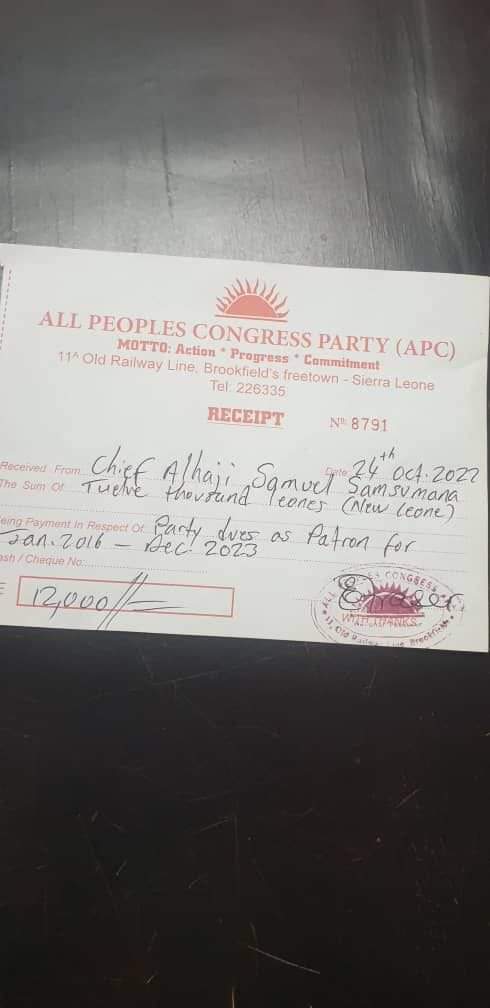 ALL PEOPLES CONGRESS PARTY (APC)
MOTTO: Action * Progress * Commitment
11A Old Railway Line, Brookfield's freetown - Sierra Leone
Tel: 226335
RECEIPT No. 8791
Received From Chief Alhaji Samuel Samsumana Date 24th Oct. 2022
The Sum Of Twelve thousand Leones (New Leone)
eing Payment In Respect Of Party dues as Patron for
Jan. 2016 - Dec. 2023
ash / Cheque No.
12,000//=
WITH THANKS
11, Old Railway Line Brookfield